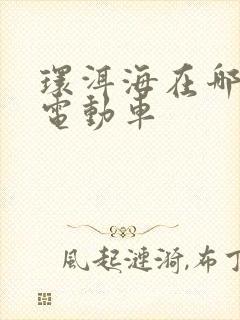 環洱海在哪
電動車
風起漣漪,布丁